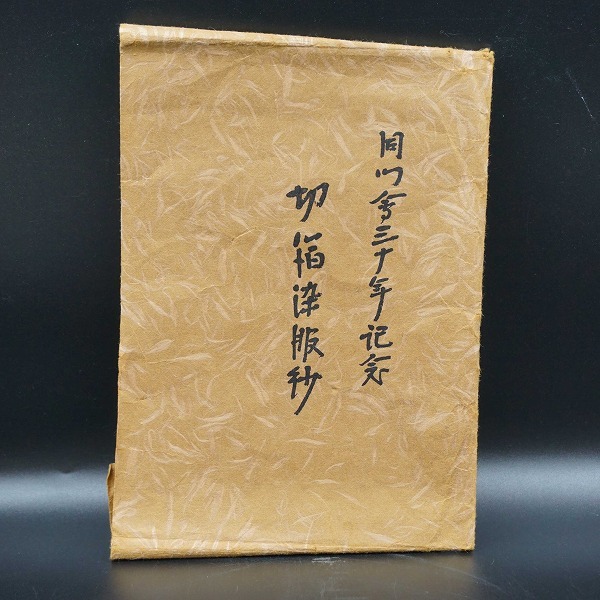 同門會三十年記念
切箔染服紗